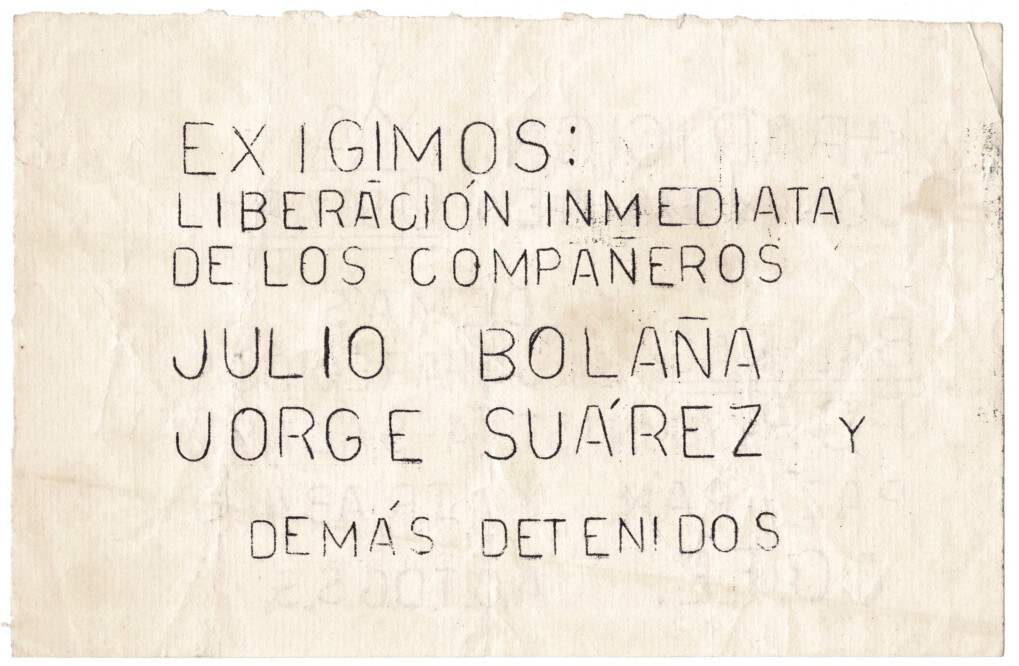 EXIGIMOS:
LIBERACIÓN INMEDIATA
DE LOS COMPAÑEROS
JULIO BOLAÑA
JORGE SUÁREZ Y
DEMÁS DETENIDOS